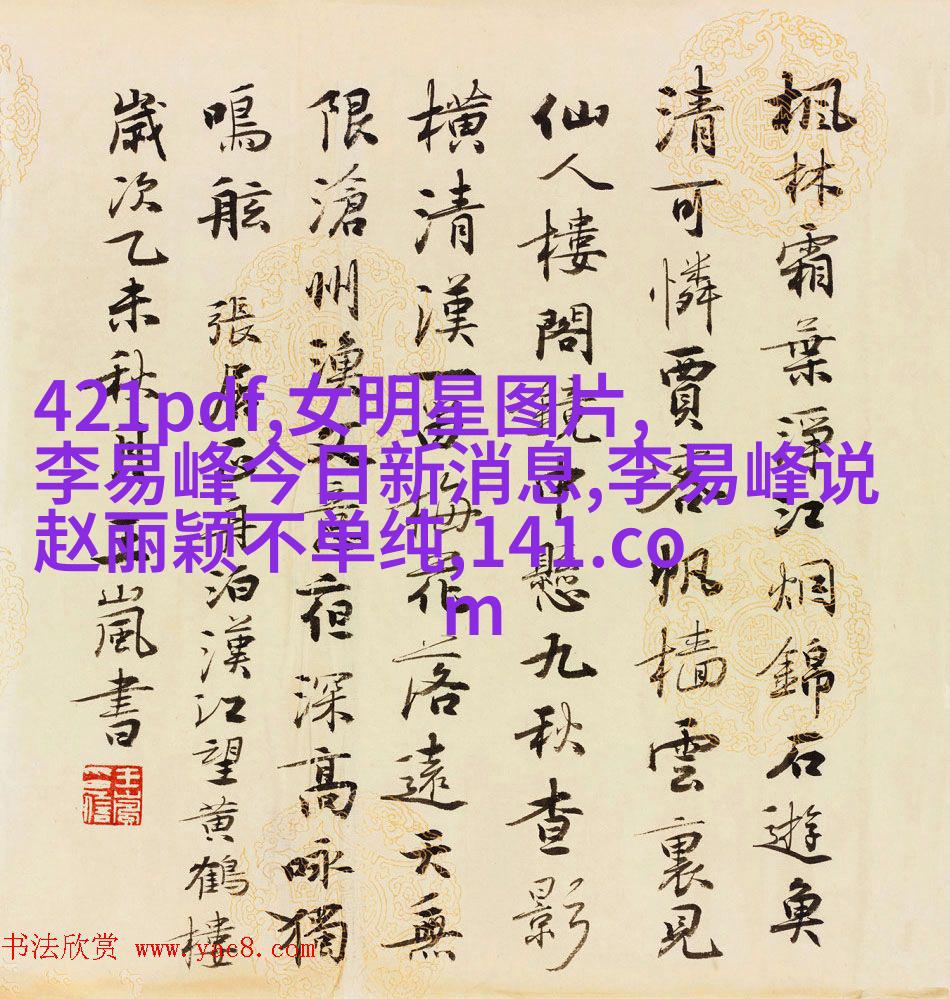 楓林霜葉淨江烟錦石遊魚
清可憐賈客帆檣雲裏見
仙人樓閣鏡中懸九秋查影
橫清漢一笛梅花落遠天無
限滄州漁父意夜深高咏獨
鳴舷 張居正舟泊漢江望黃鶴樓
歲次乙未秋嵐書
421pdf,女明星图片,
李易峰今日新消息,李易峰说
赵丽颖不单纯,141.co
m
书法欣赏 www.yac8.com